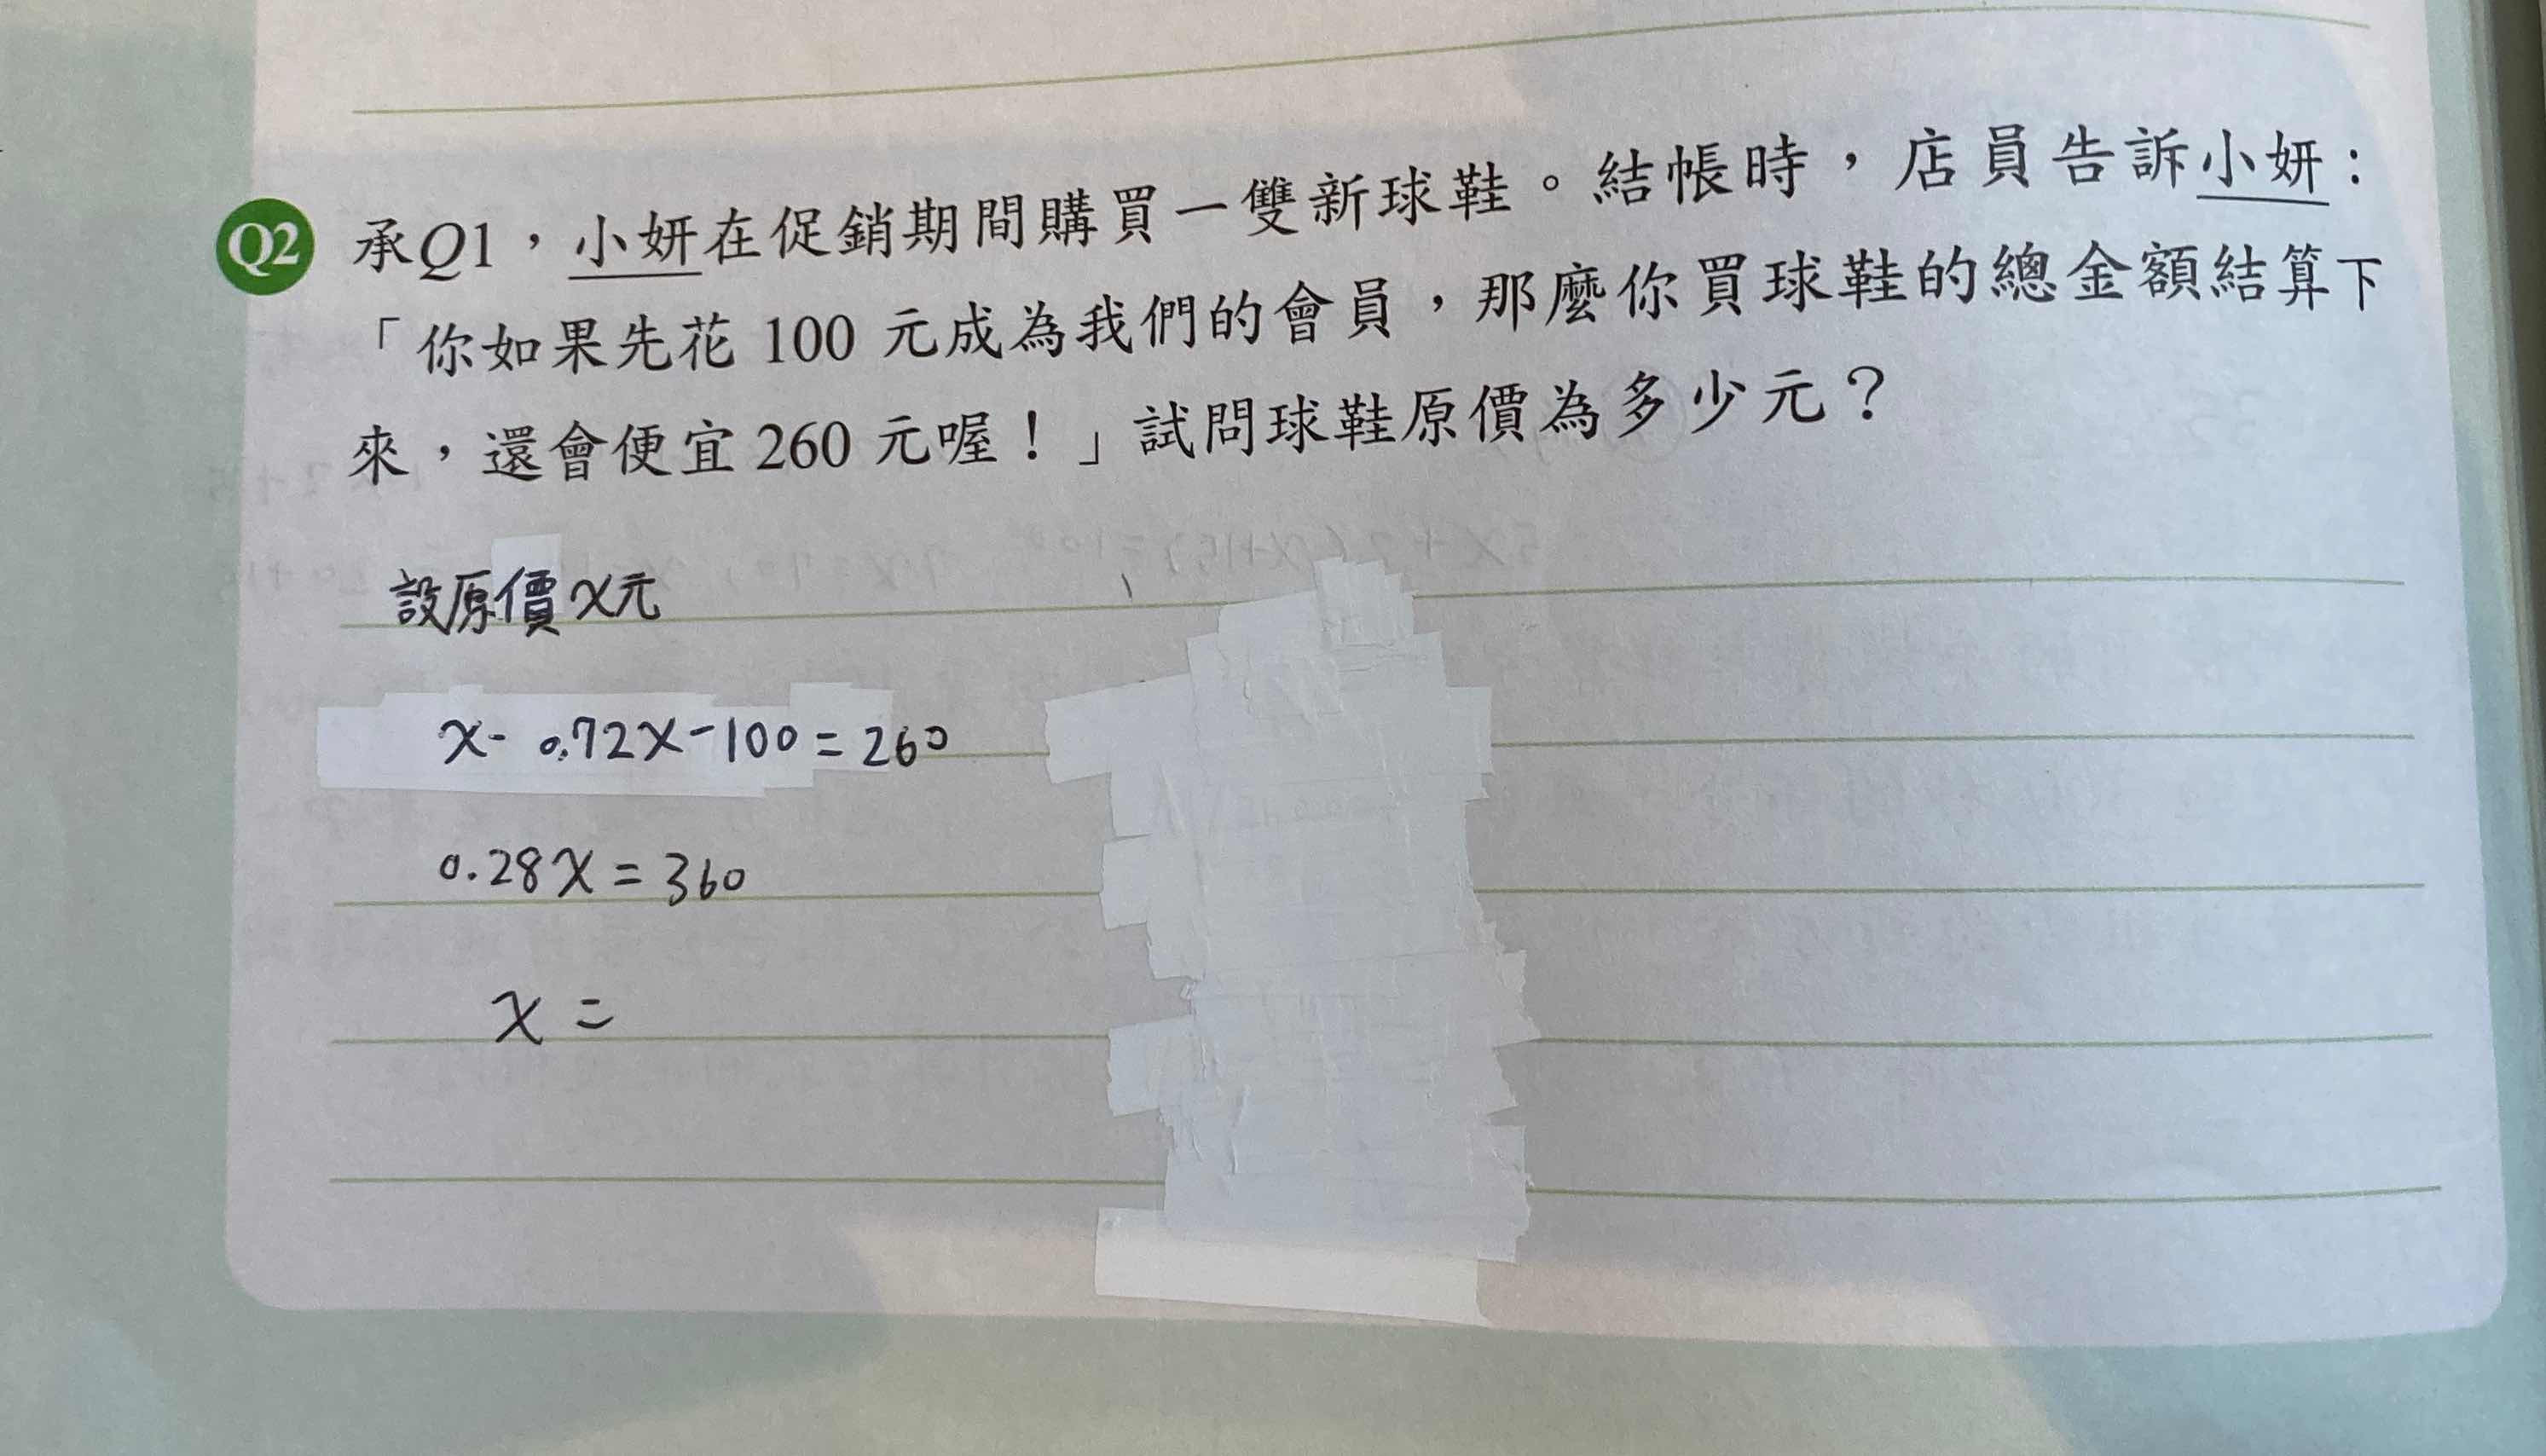 Q2 承Q1，小妍在促銷期間購買一雙新球鞋。結帳時，店員告訴小妍：
「你如果先花 100 元成為我們的會員，那麼你買球鞋的總金額結算下
來，還會便宜 260 元喔！」試問球鞋原價為多少元？
設原價x元
x - 0.72x - 100 = 260
0.28x = 360
x =